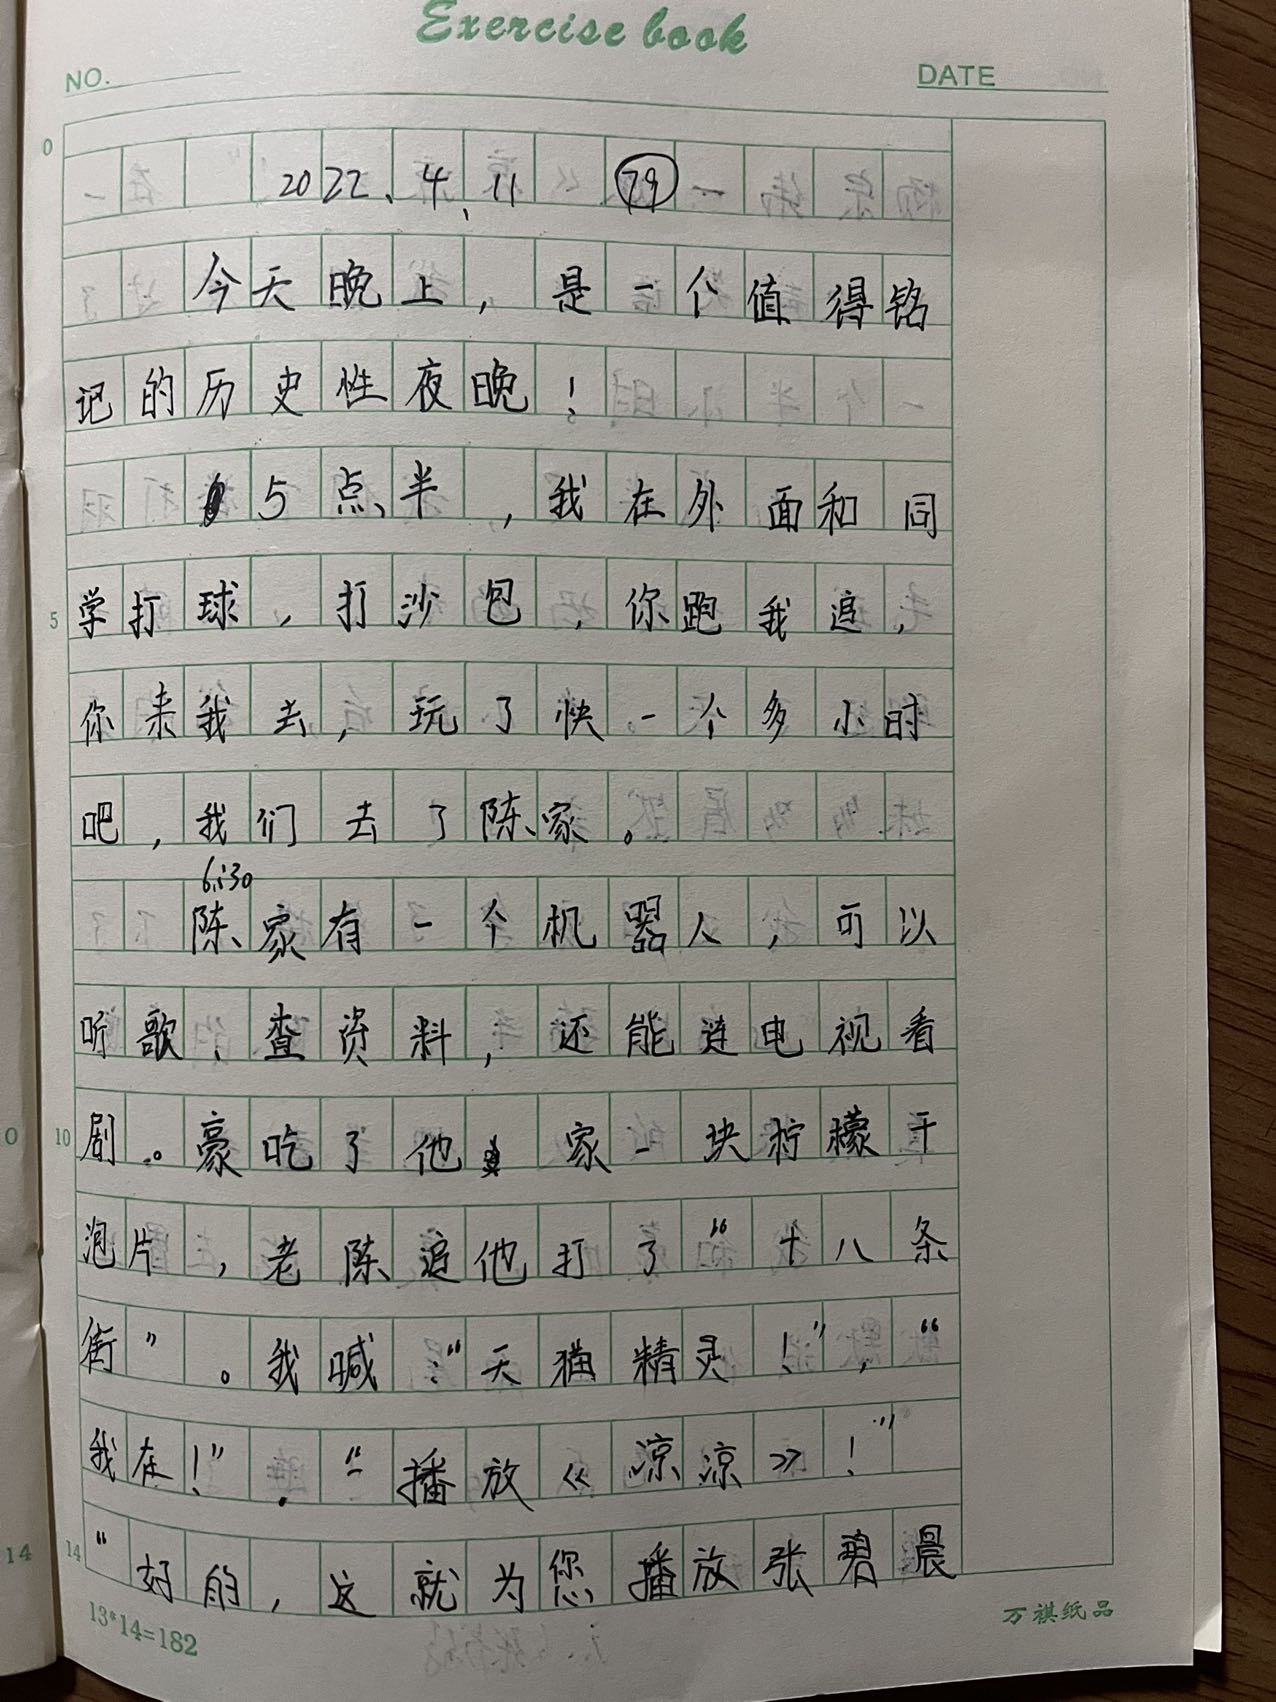 Exercise book
NO.
DATE
0
2022.4.11 79
今天晚上,是一个值得铭
记的历史性夜晚!
5点半,我在外面和同
5
学打球,打沙包,你跑我追,
你来我去,玩了快一个多小时
吧,我们去了陈家。
6:30
陈家有一个机器人,可以
听歌、查资料,还能连电视看
10
剧。豪吃了他家一块柠檬干
泡片,老陈追他打了“十八条
街”。我喊:“天猫精灵!”,“
我在!”.“播放《凉凉》!”
14
“好的,这就为您播放张碧晨
13*14=182
万祺纸品
0
14